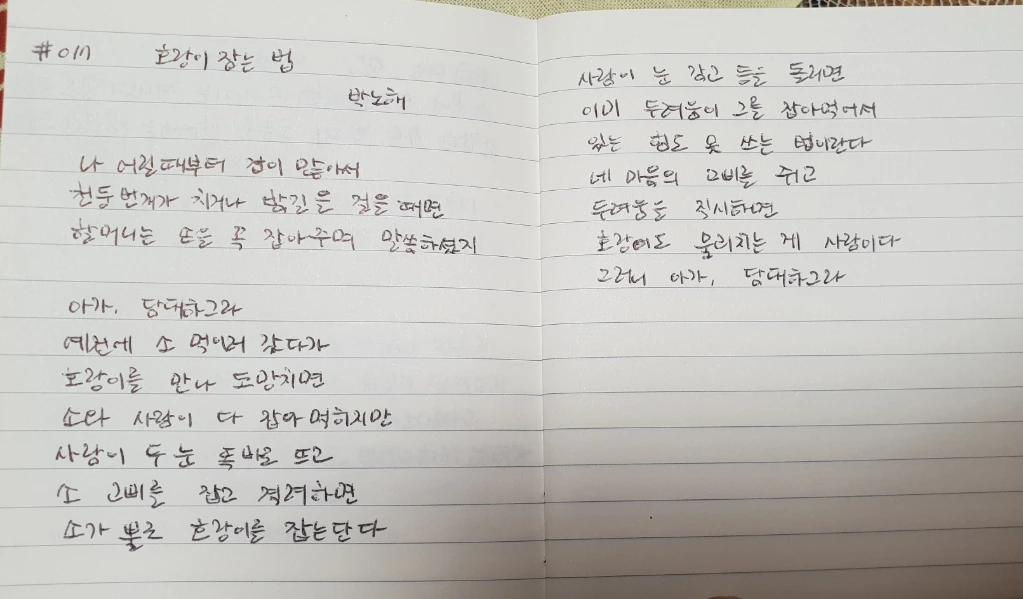 #017 호랑이 잡는 법
박노해
나 어릴때부터 겁이 많아서
천둥번개가 치거나 밤길을 걸을 때면
할머니는 손을 꼭 잡아주며 말씀하셨지
아가, 담대하그라
예전에 소 먹이러 갔다가
호랑이를 만나 도망치면
소와 사람이 다 잡아먹히지만
사람이 두 눈 똑바로 뜨고
소 고삐를 잡고 격려하면
소가 뿔로 호랑이를 잡는단다
사람이 눈 감고 등을 돌리면
이미 두려움이 그를 잡아먹어서
있는 힘도 못 쓰는 법이란다
네 마음의 고삐를 쥐고
두려움을 직시하면
호랑이도 물리치는 게 사람이다
그러니 아가, 담대하그라